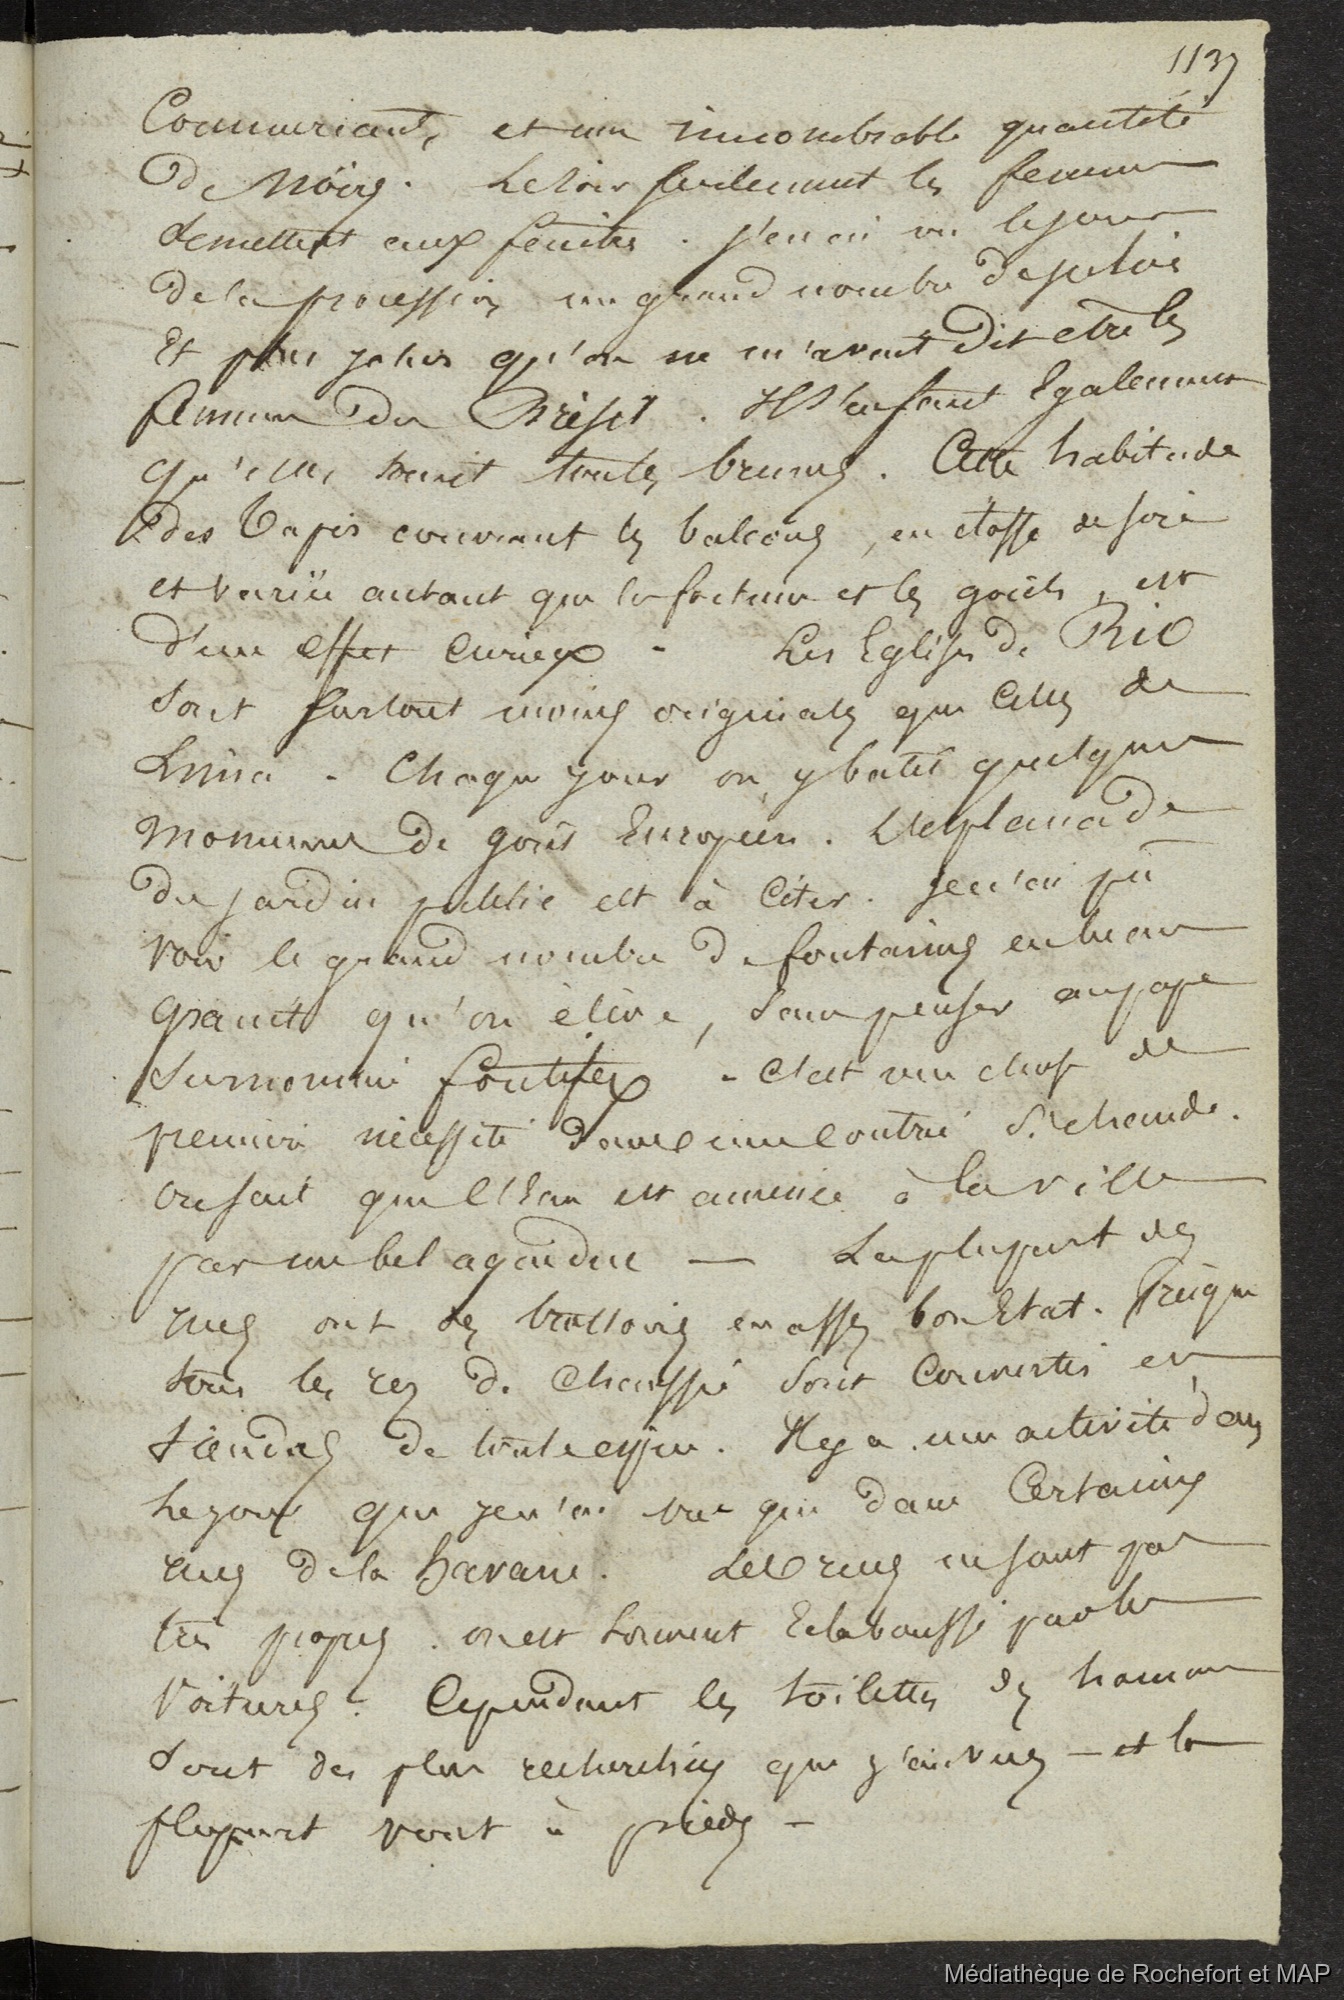 1137
Commerciants, et une innombrable quantité
de Noirs. Le soir seulement les femmes
se mettent aux fenêtres. j'en ai vu le jour
de la procession un grand nombre de jolies
Et plus jolies qu'on ne m'avait dit etre les
femmes du Brésil. Il s'en faut Egalement
qu'elles soient toutes brunes. Cette habitude
des Tapis couvrant les balcons, en étoffe de soie
et variée autant que la fortune et les goûts, est
d'un effet curieux - Les Eglises de Rio
sont surtout moins originales que celles de
Lima - Chaque jour on y batit quelque
monument de goût Européen. L'esplanade
du jardin public est à citer. Je n'ai pû
voir le grand nombre de fontaines en beau
granit qu'on élève, sans penser au pape
surnommé fontifex - C'est une chose de
première nécessité dans une contrée si chaude.
on sait que l'Eau est amenée à la ville
par un bel aqueduc — La plupart des
rues ont des trottoirs en assez bon Etat. Presque
tous les rez de chaussée sont convertis en
tiendas de toute espèce. Il y a une activité dans
le jour que je n'ai vue que dans Certaines
rues de la havane. Les rues ne sont pas
très propres. on est souvent Eclaboussé par les
Voitures. Cependant les toilettes des hommes
sont des plus recherchées que j'ai vues - et la
plupart vont à pieds -
Médiathèque de Rochefort et MAP